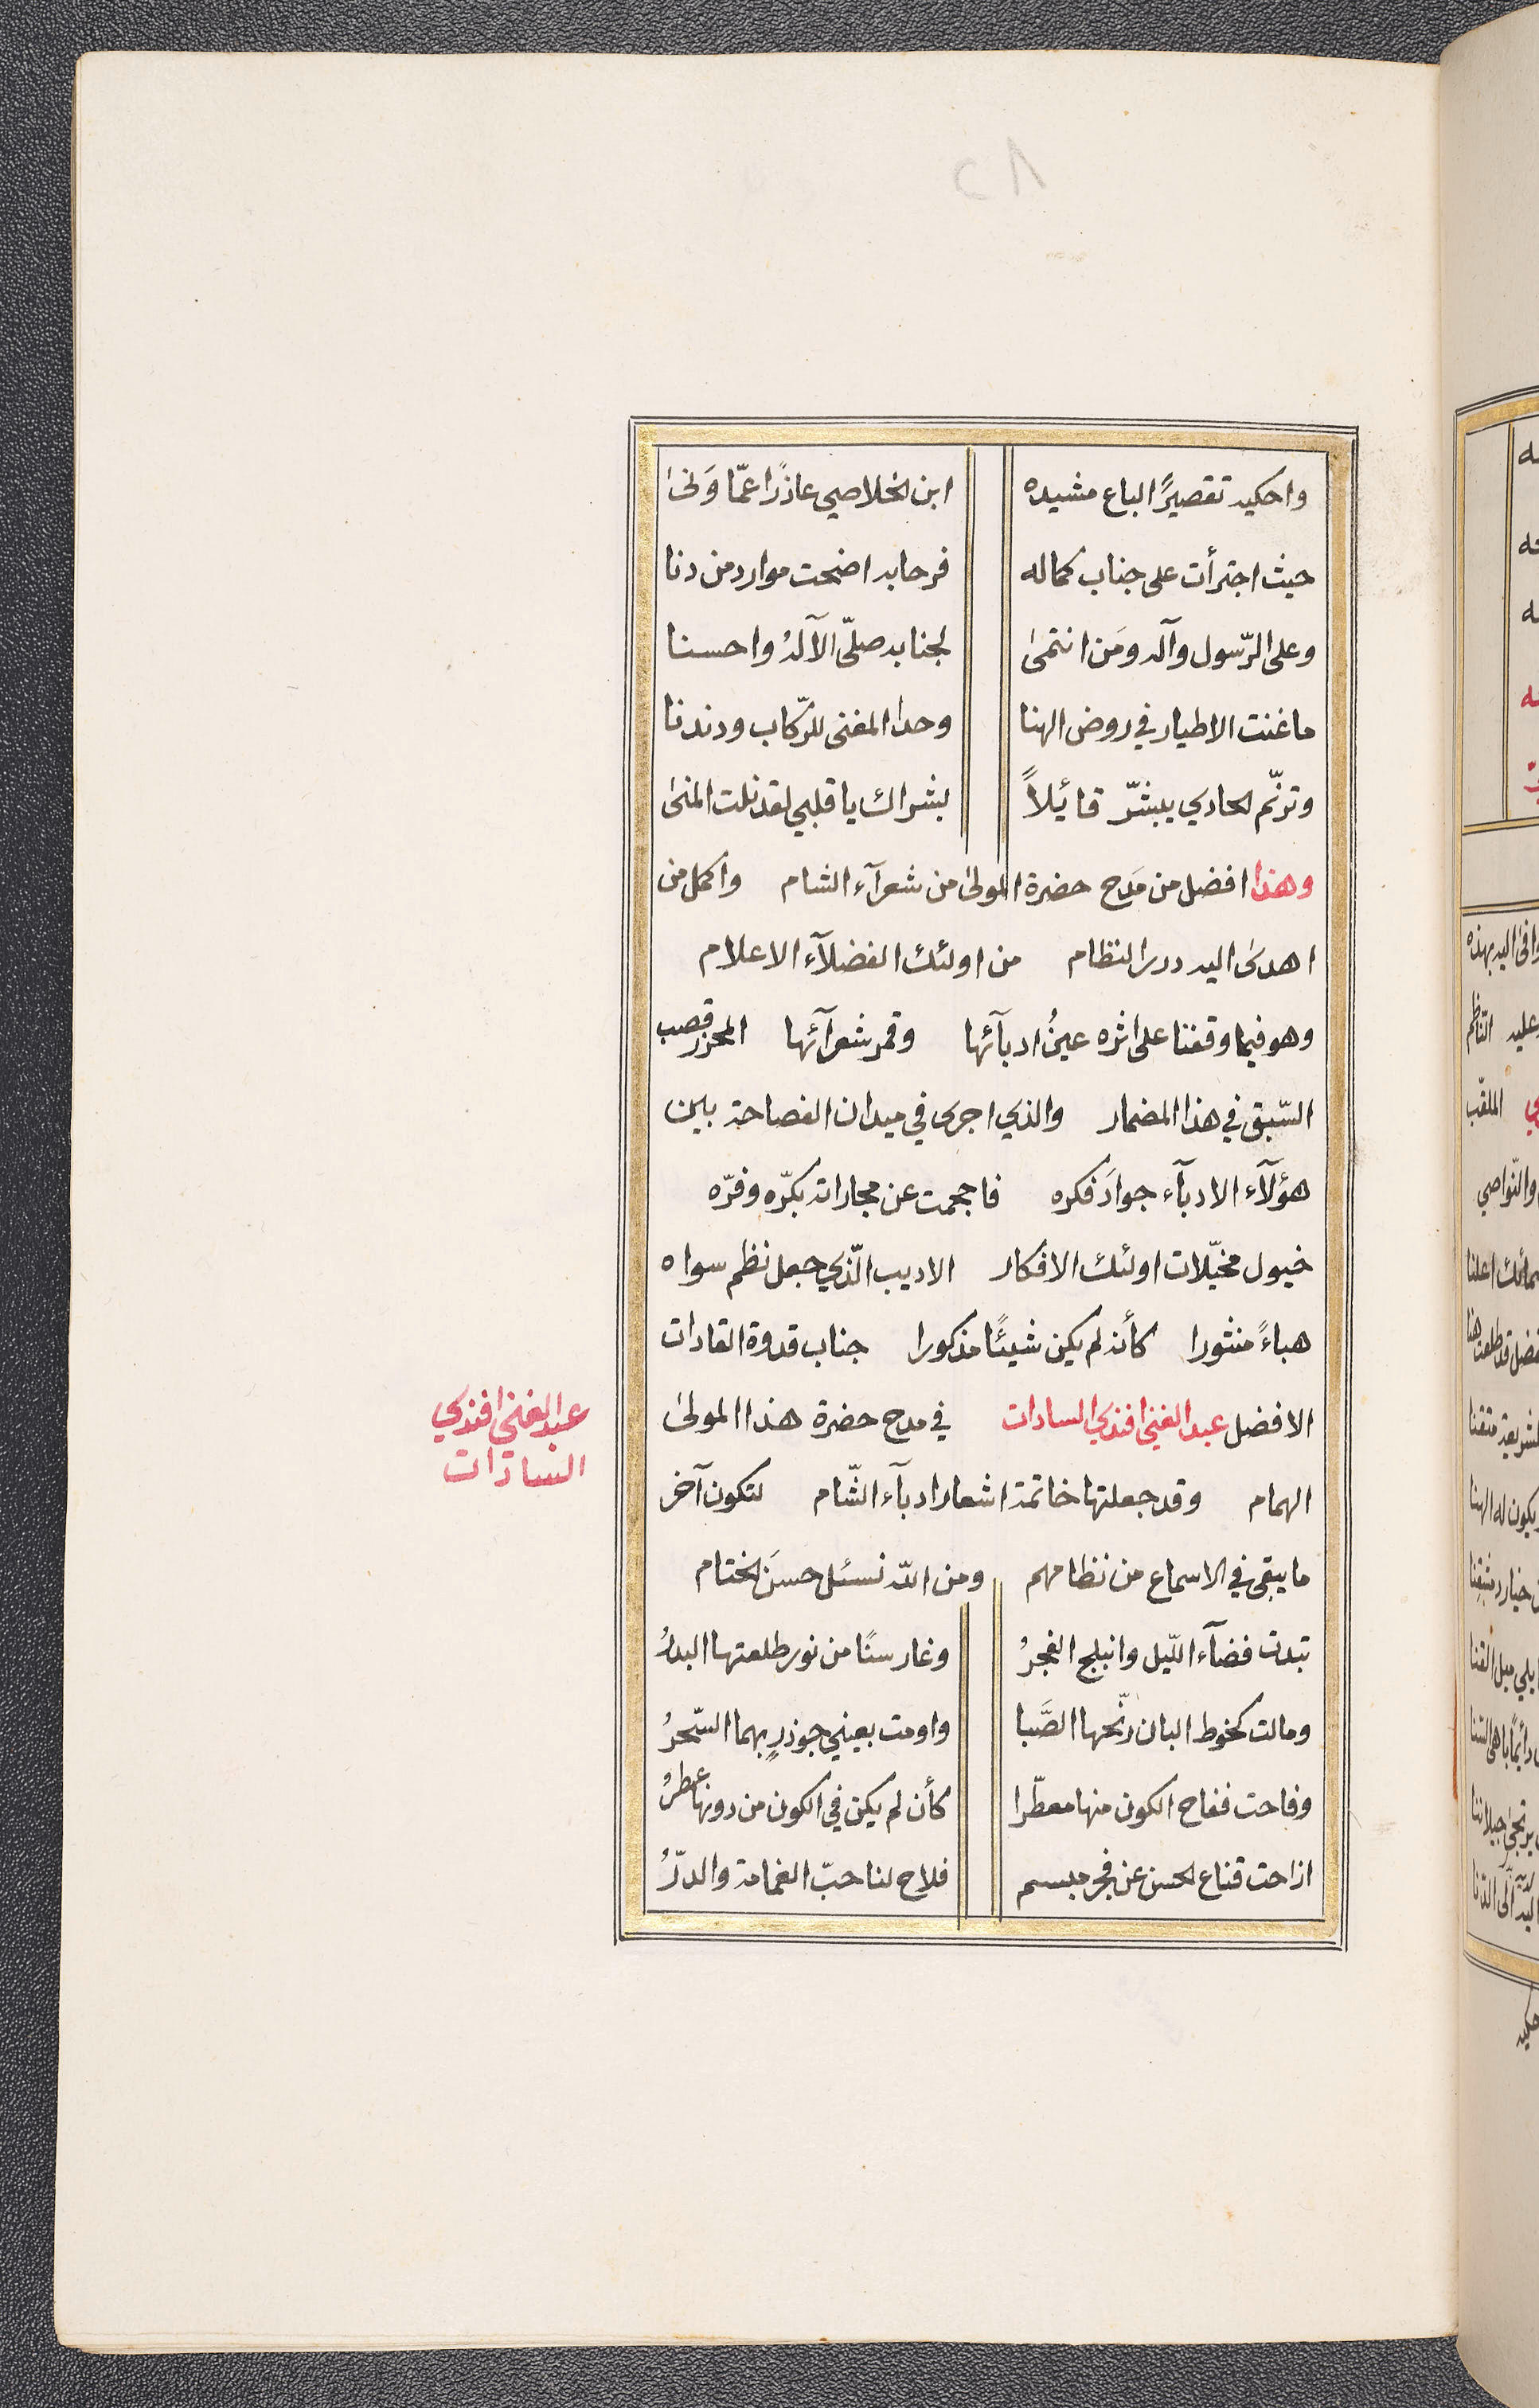 ٢٨
واحكيه تقصيرًا الباع مشيده ابن الخلاصي عاذرًا عمّا وَنىٰ
حيث اجترأت على جناب كماله فرحابه اضحت موارد من دنا
وعلى الرّسول وآله ومَن انتمىٰ لجنابه صلّى الآلهُ واحسنا
ما غنت الاطيار في روض الهنا وحدا المغنى للرّكاب ودندنا
وترنّم الحادي يبشّر قائيلاً بشراك يا قلبي لقد نلت المنىٰ
وهذا افضل من مَدح حضرة المولىٰ من شعرآء الشام واكمل من
اهدىٰ اليه درر النظام من اولئك الفضلآء الاعلام
وهو فيما وقفنا على اثره عينُ ادبآئها وقمر شعرآئها المحرز قصب
السّبق في هذا المضمار والذي اجرى في ميدان الفصاحة بين
هؤلآء الادبآء جوادَ فكره فاحجمت عن مجاراته بكرّه وفرّه
خيول مخيّلات اولئك الافكار الاديب الّذي جعل نظم سواه
هباءً منثورا كأنه لم يكن شيئًا مذكورا جناب قدوة القادات
الافضل عبد الغني افندي السادات في مدح حضرة هذا المولىٰ
عبد الغني افندي
السادات
الهمام وقد جعلتها خاتمة اشعار ادبآء الشّام لتكون آخر
ما يبقى في الاسماع من نظامهم ومن الله نسئل حسنَ الختام
تبدت فضآء اللّيل وانبلج الفجرُ وغار سنًا من نور طلعتها البدرُ
ومالت كخوط البان رنّحها الصَّبا واومت بعيني جوذرٍ بهما السّحرُ
وفاحت ففاح الكون منها معطّرا كأن لم يكن في الكون من دونها عطرُ
ازاحت قناع الحسن عن فجر مبسم فلاح لنا حبّ الغمامة والدرّرُ